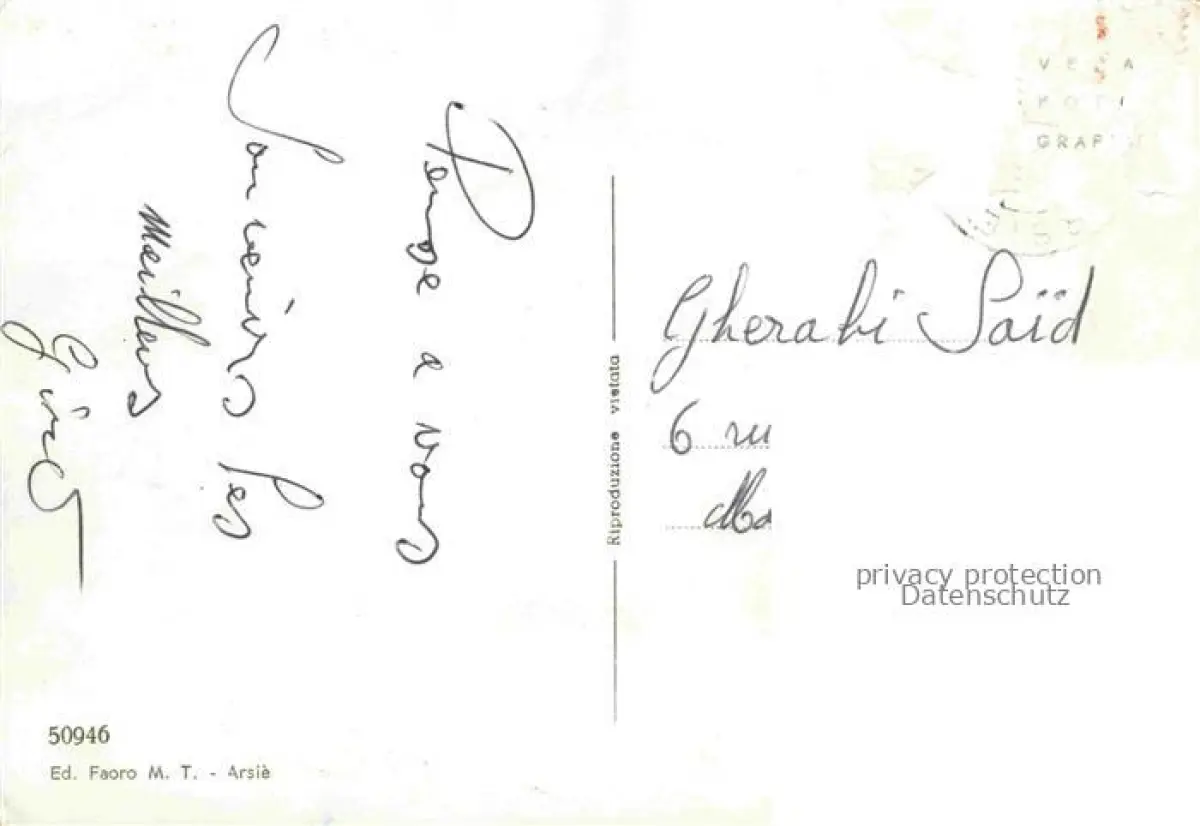 Pense a vous
Souvenirs les
meilleurs
VERA
FOTOGRAFIA
Gherabi Saïd
6 ru
Ma
Riproduzione vietata
privacy protection
Datenschutz
50946
Ed. Faoro M. T. - Arsiè